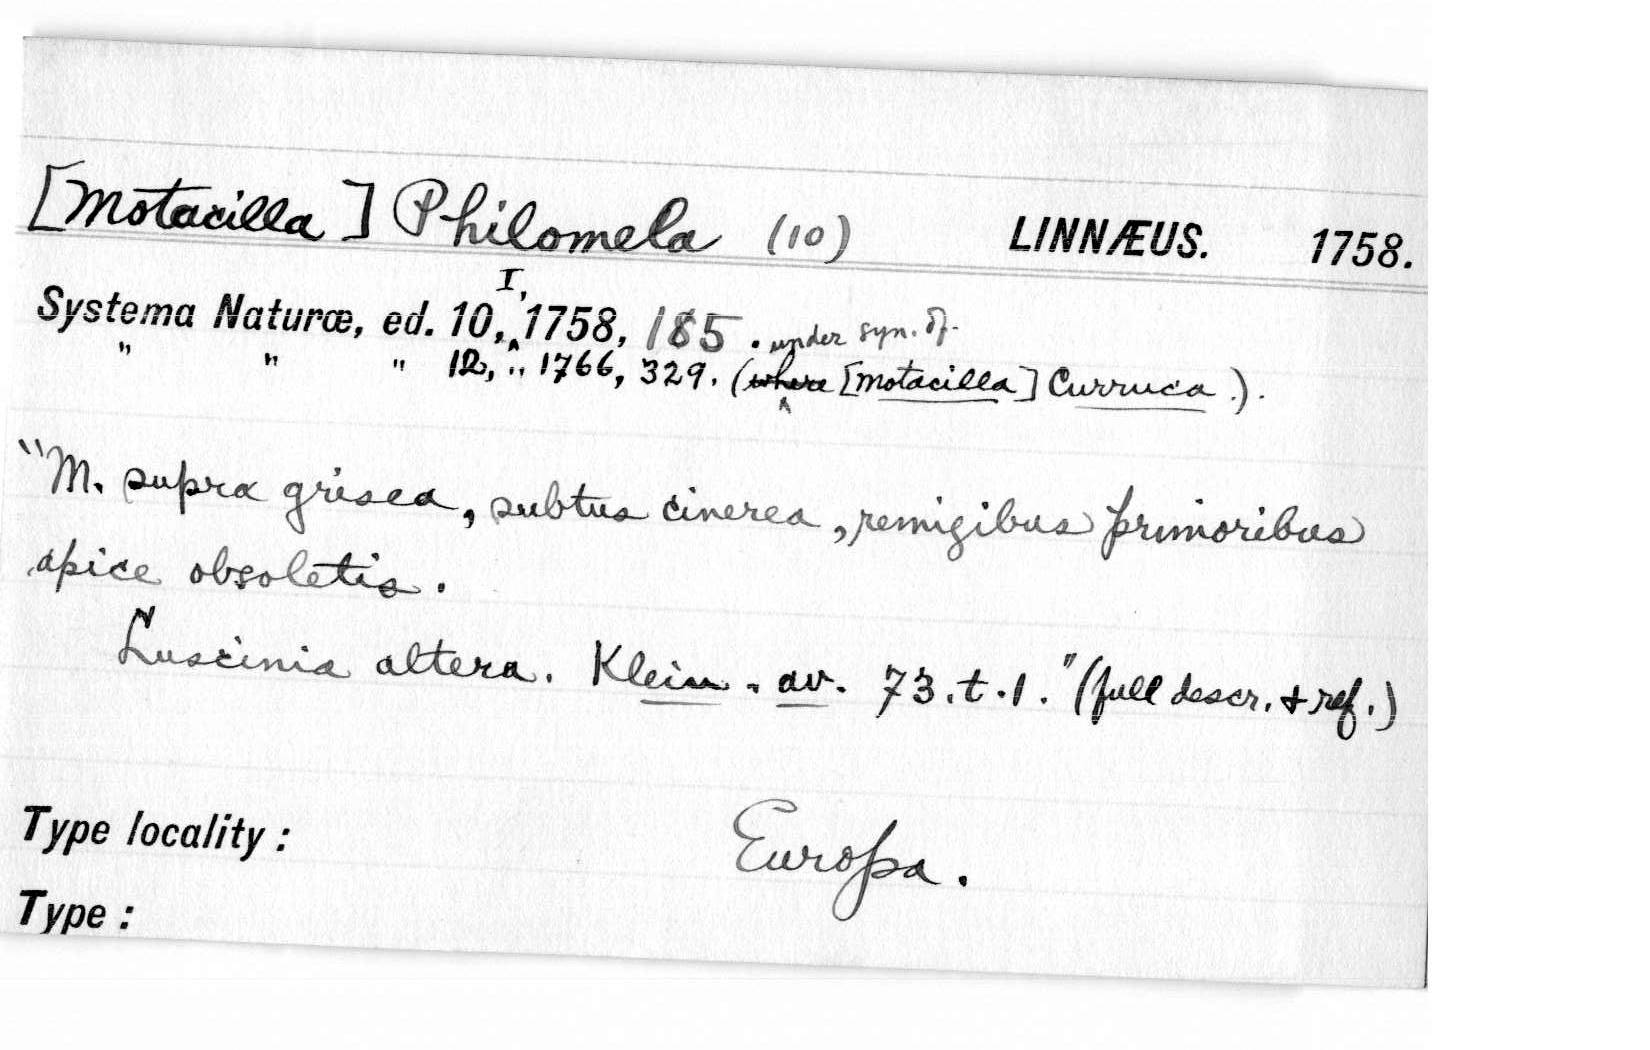 [Motacilla] Philomela (10) LINNÆUS. 1758.
Systema Naturæ, ed. 10, I, 1758, 185. under syn. of.
" " " 12, " 1766, 329. (where [Motacilla] Curruca.).
"M. supra grisea, subtus cinerea, remigibus primoribus
apice obsoletis.
Luscinia altera. Klein. av. 73. t. 1." (full descr. & ref.)
Type locality: Europa.
Type: